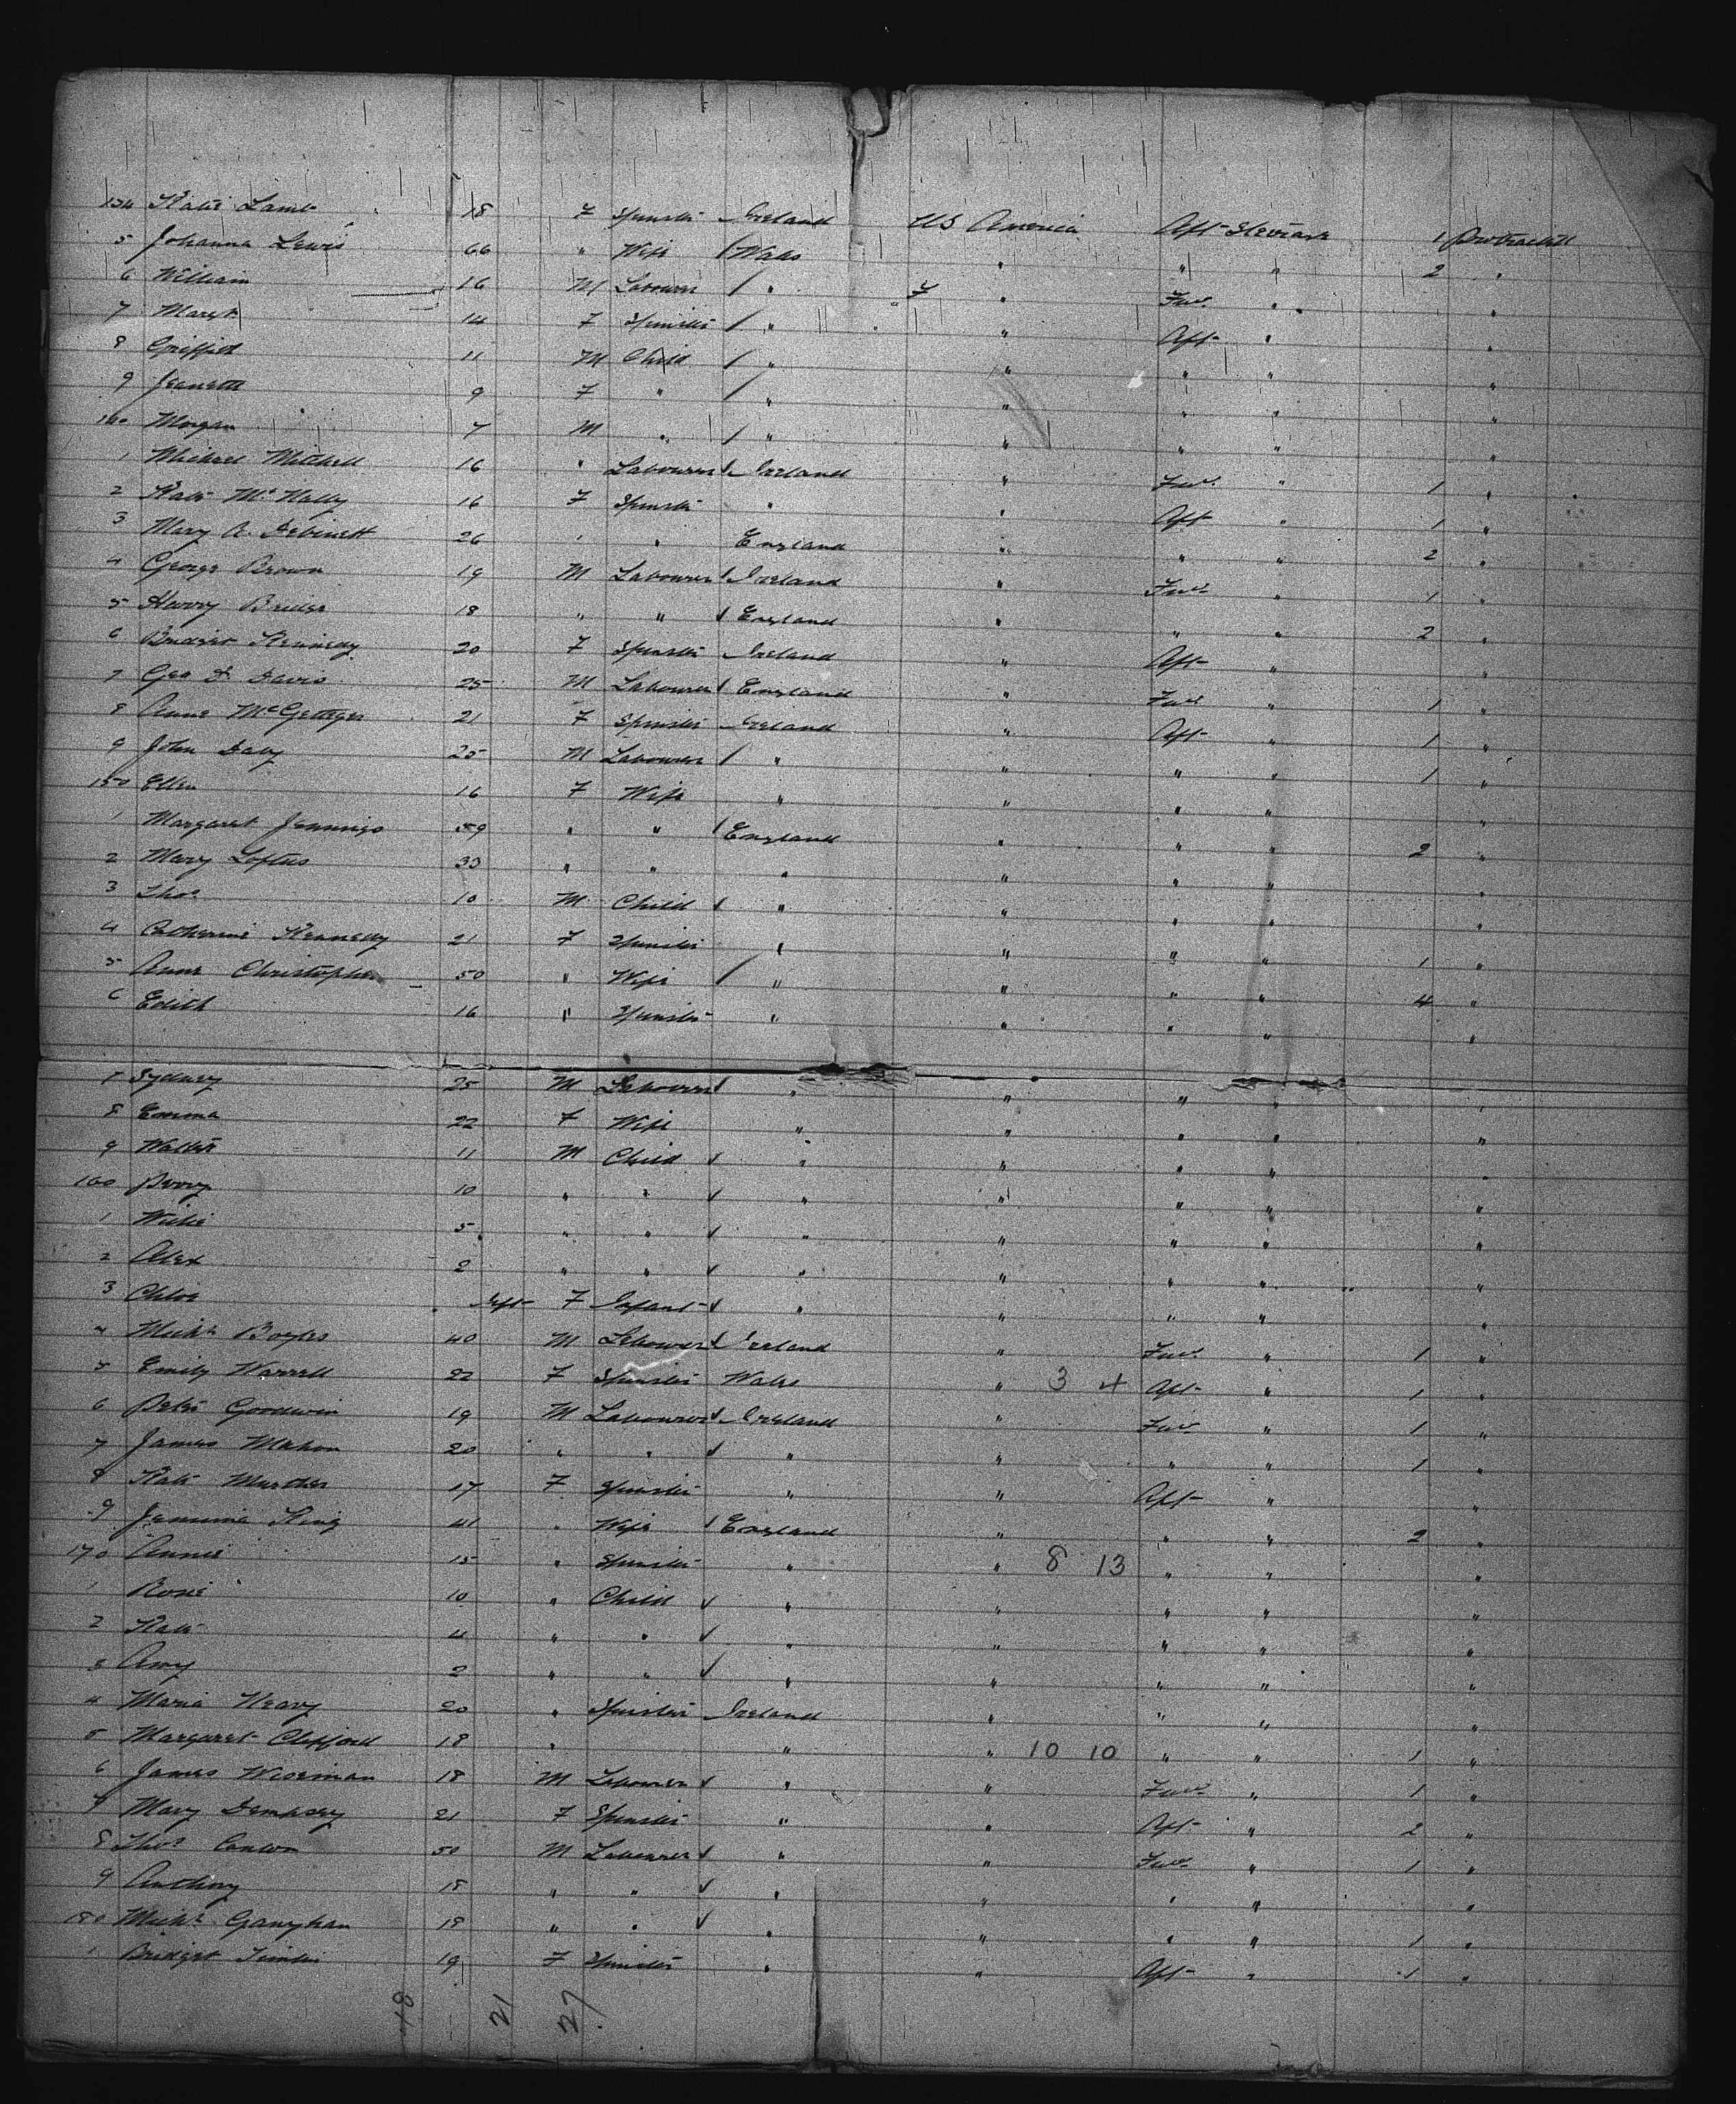 134 Katie Lamb 18 F Spinster Ireland US America Aft Steerage 1 Protracted
5 Johanna Lewis 66 " Wife / Wales " " " 2 "
6 William 16 M Labourer / " " Fwd " "
7 Margt 14 F Spinster / " " Aft " "
8 Griffith 11 M Child / " " " " "
9 Jeanett 9 F " / " " " " "
140 Morgan 7 M " / " " " " "
1 Michael Mitchell 16 " Labourer Ireland " Fwd " 1 "
2 Kate McNally 16 F Spinster " " Aft " 1 "
3 Mary A. 26 " " England " " " 2 "
4 George Brown 19 M Labourer Ireland " Fwd " 1 "
5 Harry Bridge 18 " " England " " " 2 "
6 Bridget Kennedy 20 F Spinster Ireland " Aft " "
7 Geo D Davis 25 M Labourer England " Fwd " 1 "
8 Anne McGettigan 21 F Spinster Ireland " Aft " 1 "
9 John Daly 25 M Labourer / " " " " 1 "
150 Ellen 16 F Wife " " " " "
1 Margaret Jennings 59 " " / England " " " 2 "
2 Mary Loftus 33 " " " " " " "
3 Thos 10 M Child " " " " "
4 Catherine Kennedy 21 F Spinster " " " " 1 "
5 Anne Christopher 50 " Wife / " " " " 4 "
6 Edith 16 " Spinster " " " " "
7 Sydney 25 M Labourer " " " " "
8 Emma 22 F Wife " " " " "
9 Walter 11 M Child " " " " "
160 Percy 10 " " " " " " "
1 Willie 5 " " " " " " "
2 Alex 2 " " " " " " "
3 Chloe Inft F Infant " " " " "
4 Michl Boyles 40 M Labourer Ireland " Fwd " 1 "
5 Emily Warrell 22 F Spinster Wales " 3 4 Aft " 1 "
6 Peter Goodwin 19 M Labourer Ireland " Fwd " 1 "
7 James Mahon 20 " " " " " " 1 "
8 Kate Murther 17 F Spinster " " Aft " "
9 Jemima King 41 " Wife / England " " " 2 "
170 Annie 15 " Spinster " " 8 13 " " "
1 Rosie 10 " Child " " " " "
2 Kate 4 " " " " " " "
3 Amy 2 " " " " " " "
4 Maria Neary 20 " Spinster Ireland " " " "
5 Margaret Clifford 18 " " " 10 10 " " 1 "
6 James Wiseman 18 M Labourer " " Fwd " 1 "
7 Mary Dempsey 21 F Spinster " " Aft " 2 "
8 Thos Conlon 50 M Labourer " " Fwd " 1 "
9 Anthony 18 " " " " " " "
180 Michl Ganghan 18 " " " " " " 1 "
1 Bridget Timlin 19 F Spinster " " Aft " 1 "
48 21 27